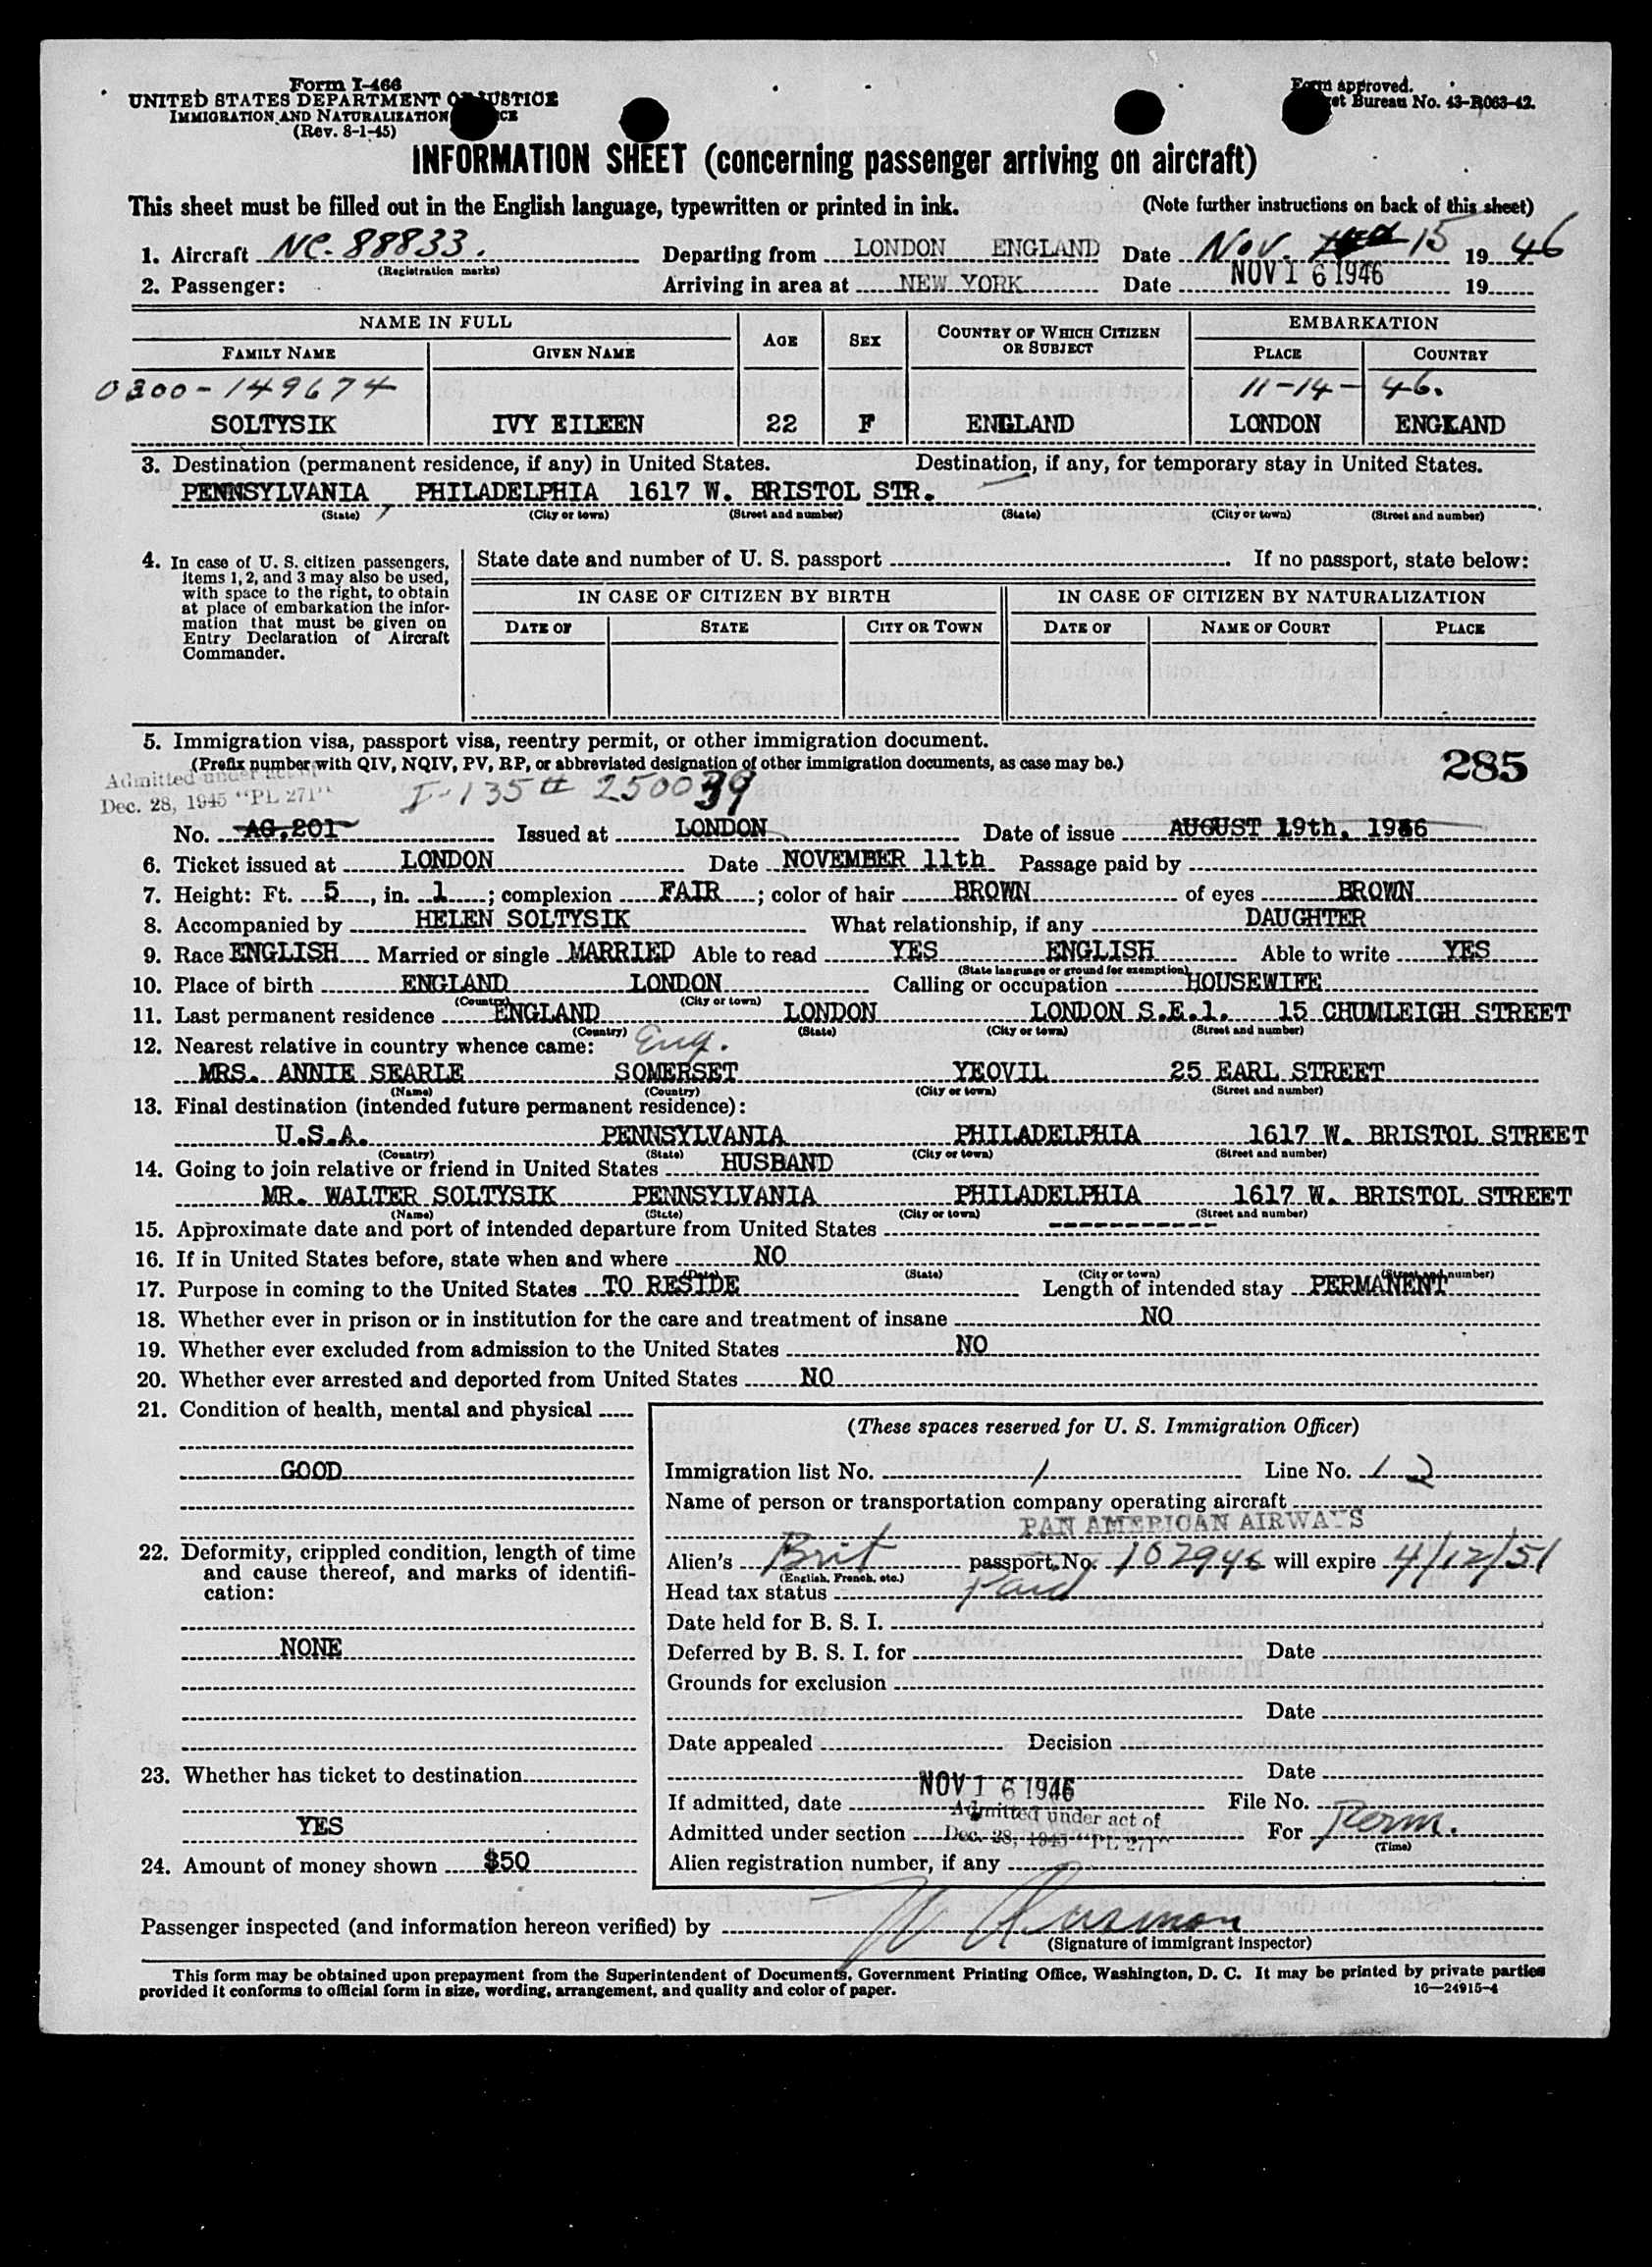 Form I-466
UNITED STATES DEPARTMENT OF JUSTICE
IMMIGRATION AND NATURALIZATION
(Rev. 8-1-45)
Form approved.
Bureau No. 43-R063-42.
INFORMATION SHEET (concerning passenger arriving on aircraft)
This sheet must be filled out in the English language, typewritten or printed in ink. (Note further instructions on back of this sheet)
1. Aircraft NC-88833. Departing from LONDON ENGLAND Date Nov. 15 1946
(Registration marks)
2. Passenger: Arriving in area at NEW YORK Date NOV 16 1946 19
NAME IN FULL AGE SEX COUNTRY OF WHICH CITIZEN OR SUBJECT EMBARKATION
FAMILY NAME GIVEN NAME PLACE COUNTRY
0300-149674 11-14-46.
SOLTYSIK IVY EILEEN 22 F ENGLAND LONDON ENGLAND
3. Destination (permanent residence, if any) in United States. Destination, if any, for temporary stay in United States.
PENNSYLVANIA PHILADELPHIA 1617 W. BRISTOL STR.
(State) (City or town) (Street and number) (State) (City or town) (Street and number)
4. In case of U. S. citizen passengers, items 1, 2, and 3 may also be used, with space to the right, to obtain at place of embarkation the information that must be given on Entry Declaration of Aircraft Commander.
State date and number of U. S. passport If no passport, state below:
IN CASE OF CITIZEN BY BIRTH IN CASE OF CITIZEN BY NATURALIZATION
DATE OF STATE CITY OR TOWN DATE OF NAME OF COURT PLACE
5. Immigration visa, passport visa, reentry permit, or other immigration document.
(Prefix number with QIV, NQIV, PV, RP, or abbreviated designation of other immigration documents, as case may be.)
285
Admitted under act of
Dec. 28, 1945 "PL 271"
I-135# 250039
No. AG.201 Issued at LONDON Date of issue AUGUST 19th. 1946
6. Ticket issued at LONDON Date NOVEMBER 11th Passage paid by
7. Height: Ft. 5, in. 1; complexion FAIR; color of hair BROWN of eyes BROWN
8. Accompanied by HELEN SOLTYSIK What relationship, if any DAUGHTER
9. Race ENGLISH Married or single MARRIED Able to read YES ENGLISH Able to write YES
(State language or ground for exemption)
10. Place of birth ENGLAND LONDON Calling or occupation HOUSEWIFE
(Country) (City or town)
11. Last permanent residence ENGLAND LONDON LONDON S.E.1. 15 CHUMLEIGH STREET
(Country) (State) (City or town) (Street and number)
12. Nearest relative in country whence came: Eng.
MRS. ANNIE SEARLE SOMERSET YEOVIL 25 EARL STREET
(Name) (Country) (City or town) (Street and number)
13. Final destination (intended future permanent residence):
U.S.A. PENNSYLVANIA PHILADELPHIA 1617 W. BRISTOL STREET
(Country) (State) (City or town) (Street and number)
14. Going to join relative or friend in United States HUSBAND
MR. WALTER SOLTYSIK PENNSYLVANIA PHILADELPHIA 1617 W. BRISTOL STREET
(Name) (State) (City or town) (Street and number)
15. Approximate date and port of intended departure from United States ----------
16. If in United States before, state when and where NO
(Date) (State) (City or town) (Street and number)
17. Purpose in coming to the United States TO RESIDE Length of intended stay PERMANENT
18. Whether ever in prison or in institution for the care and treatment of insane NO
19. Whether ever excluded from admission to the United States NO
20. Whether ever arrested and deported from United States NO
21. Condition of health, mental and physical
GOOD
22. Deformity, crippled condition, length of time and cause thereof, and marks of identification:
NONE
23. Whether has ticket to destination
YES
24. Amount of money shown $50
(These spaces reserved for U. S. Immigration Officer)
Immigration list No. 1 Line No. 12
Name of person or transportation company operating aircraft
PAN AMERICAN AIRWAYS
Alien's Brit passport No. 102946 will expire 4/12/51
(English, French, etc.)
Head tax status Paid
Date held for B. S. I.
Deferred by B. S. I. for Date
Grounds for exclusion
Date
Date appealed Decision
Date
If admitted, date NOV 16 1946 File No.
Admitted under section Admitted under act of Dec. 28, 1945 "PL 271" For Perm.
(Time)
Alien registration number, if any
Passenger inspected (and information hereon verified) by
(Signature of immigrant inspector)
This form may be obtained upon prepayment from the Superintendent of Documents, Government Printing Office, Washington, D. C. It may be printed by private parties
provided it conforms to official form in size, wording, arrangement, and quality and color of paper. 16—24915-4